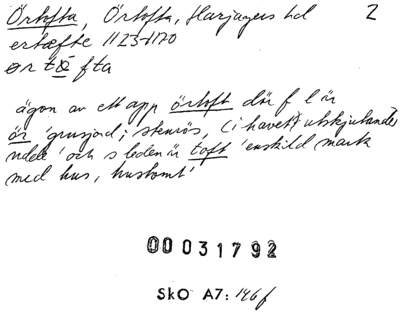 Örtofta, Örtofta, Harjagers hd 2
ertæfte 1123-1170
ørtø̂fta
ägon av ett app örtoft där f l är
ör 'grusjord; stenrös, (i havet) utskjutande
udde' och s leden är toft 'enskild mark
med hus, hustomt'
00031792
SkO A7: 146f